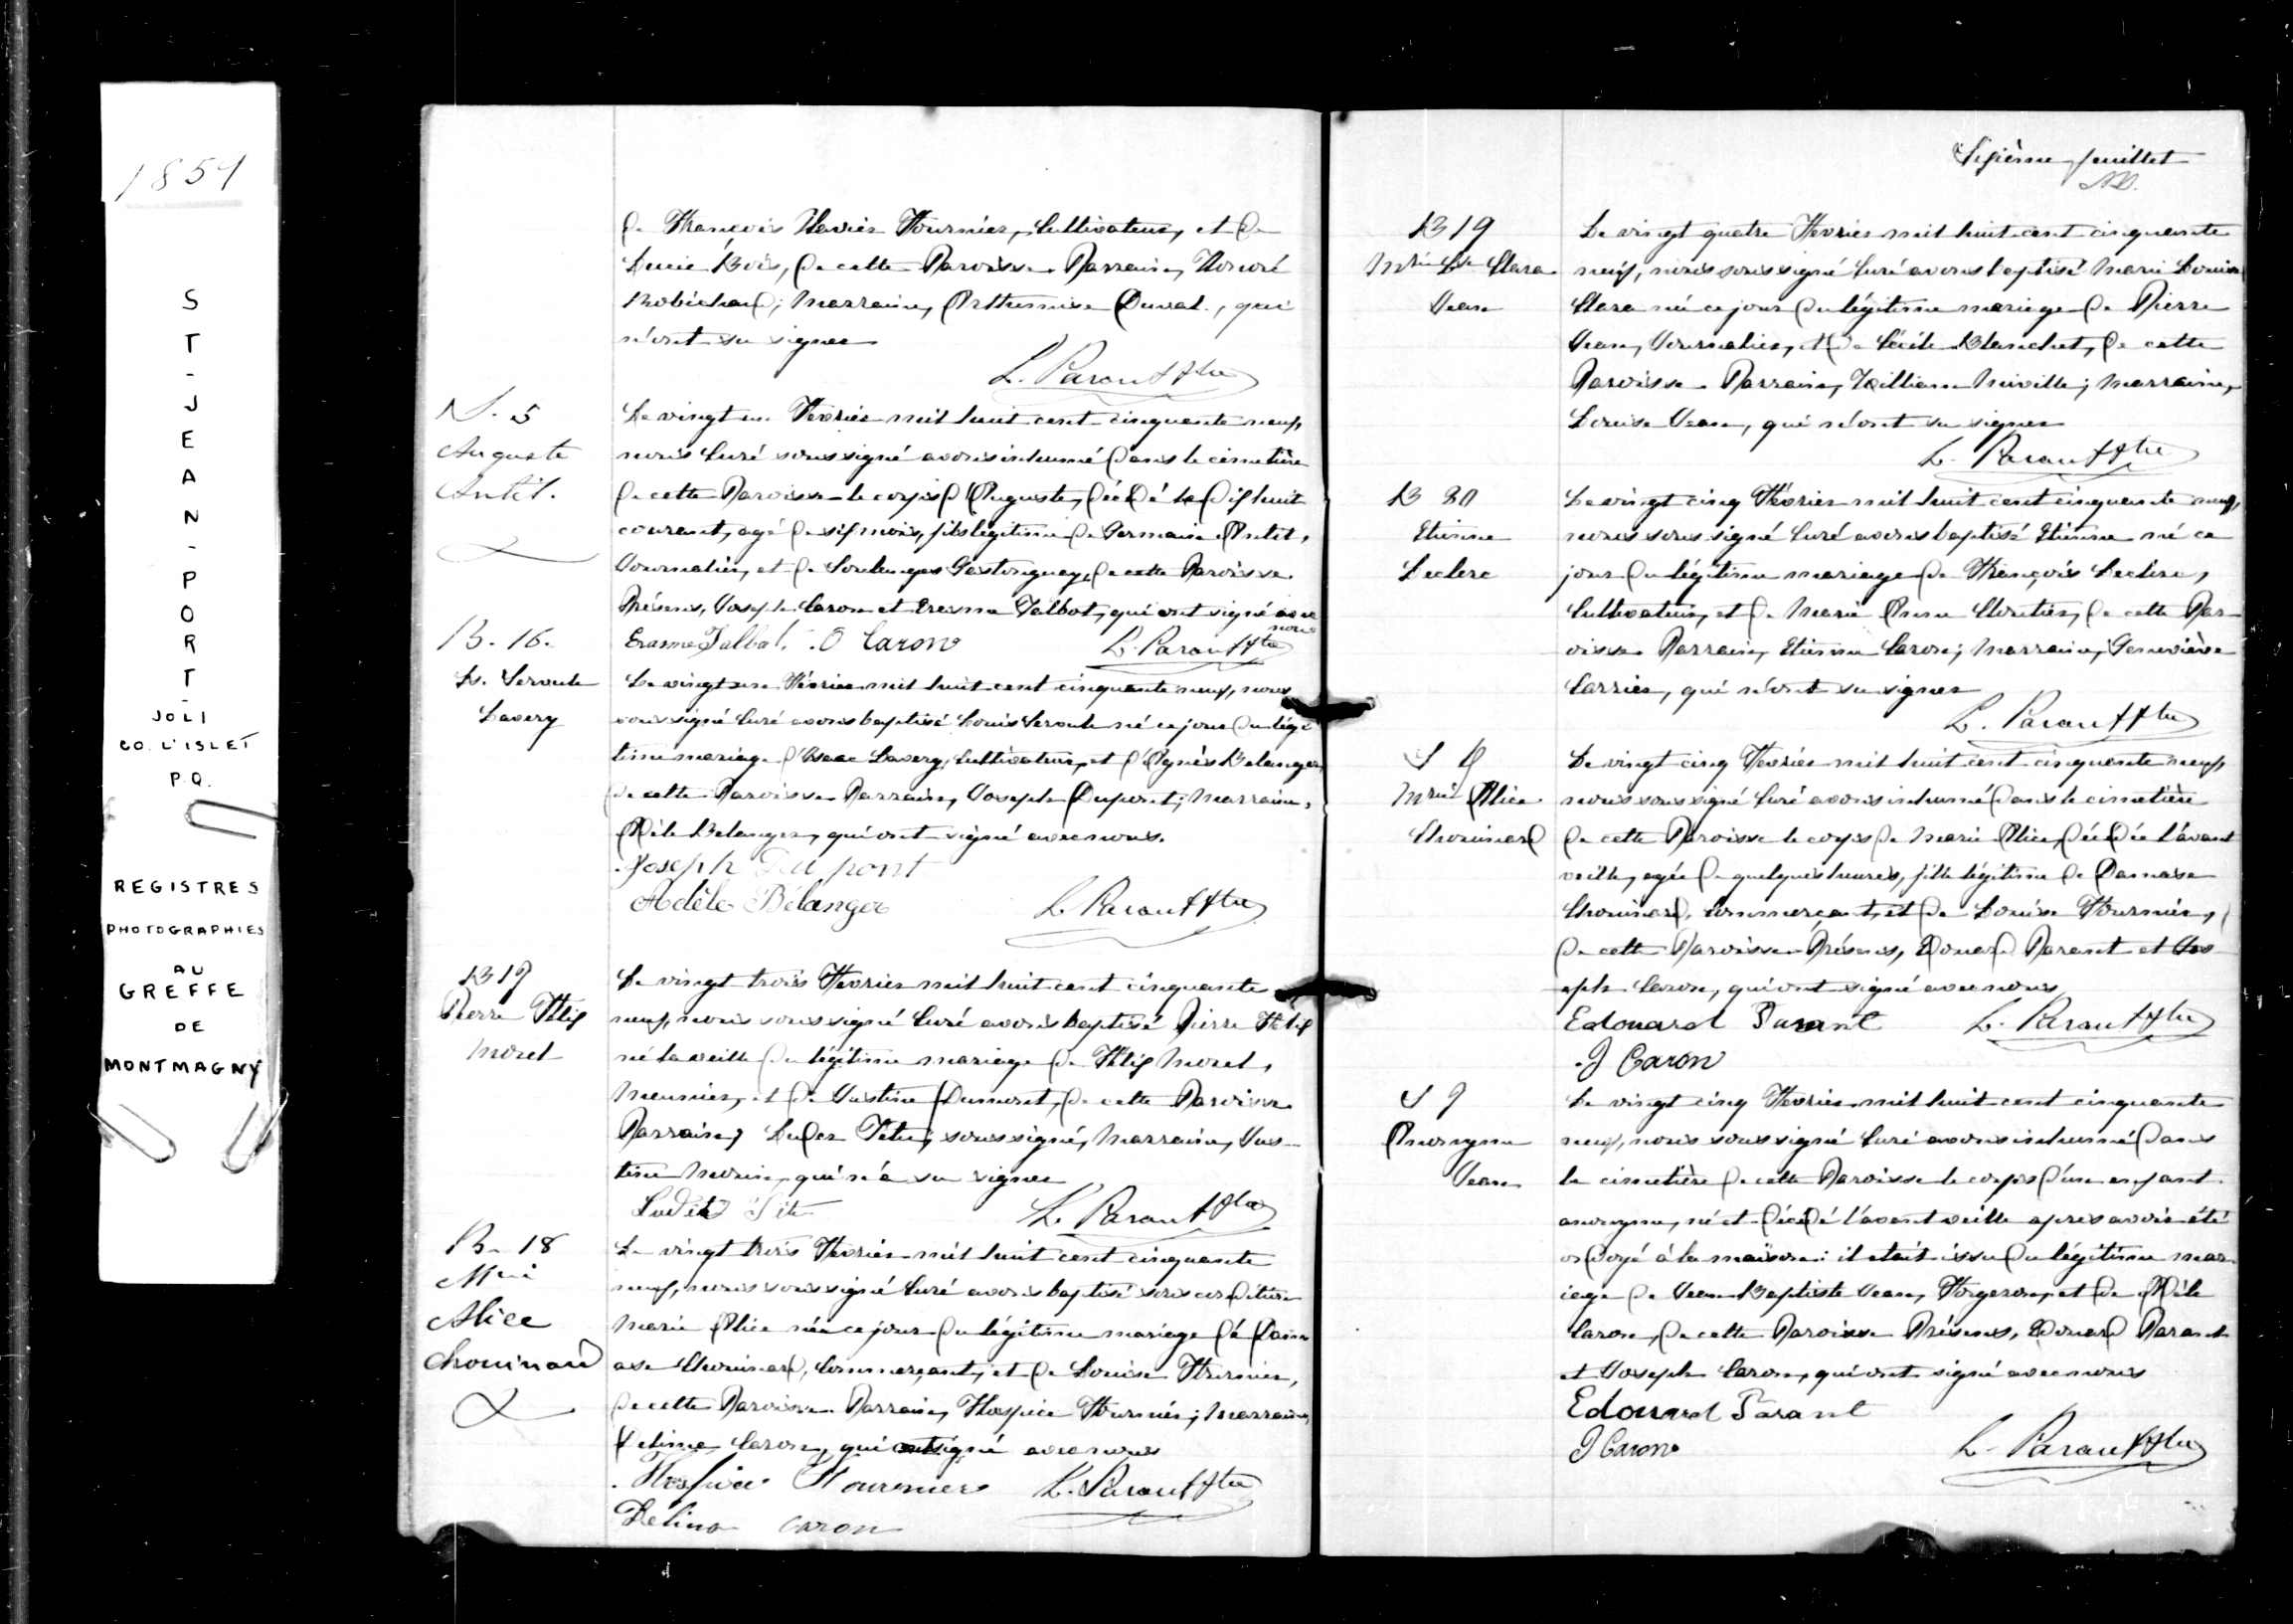 1859
ST-JEAN-PORT-
JOLI
CO. L'ISLET
P.Q.
REGISTRES
PHOTOGRAPHIES
AU
GREFFE
DE
MONTMAGNY
de François Xavier Fournier, Cultivateur, et de
Lucie Bois, de cette Paroisse Parrain, Honoré
Robichaud; Marraine, Arthemise Duval, qui
n'ont su signer
L. Parant Ptre
S. 5
Auguste
Antil.
Le vingt un Février mil huit cent cinquante neuf,
nous Curé soussigné avons inhumé dans le cimetière
de cette Paroisse le corps d'Auguste, décédé le dix huit
courant, agé de six mois, fils légitime de Germain Antil,
Journalier, et de Soulanges Gastonguay, de cette Paroisse
Présens, Joseph Caron et Erasme Talbot, qui ont signé avec
nous
Erasme Talbot. O Caron L. Parant Ptre
B. 16.
Ls. Seroule
Lavery
Le vingt un Février mil huit cent cinquante neuf, nous
soussigné Curé avons baptisé Louis Seroule né ce jour du légi
time mariage d'Isaac Lavery, Cultivateur, et d'Agnès Belanger,
de cette Paroisse Parrain, Joseph Dupont; Marraine,
Adèle Belanger, qui ont signé avec nous.
Joseph Dupont
Adèle Bélanger L. Parant Ptre
B 17
Pierre Félix
Morel
Le vingt trois Février mil huit cent cinquante
neuf, nous soussigné Curé avons baptisé Pierre Félix
né la veille du légitime mariage de Félix Morel,
Meunier, et de Justine Dumont, de cette Paroisse
Parrain, Tetu, soussigné, Marraine, Jus-
tine Morin, qui n'a su signer
L. Parant Ptre
B. 18
Mrie
Alice
Chouinard
Le vingt trois Février mil huit cent cinquante
neuf, nous soussigné Curé avons baptisé sous condition
Marie Alice née ce jour du légitime mariage de Dam
ase Chouinard, Commerçant, et de Louise Fournier,
de cette Paroisse Parrain, Hospice Fournier; Marraine,
Delima Caron, qui ont signé avec nous
Hospice Fournier L. Parant Ptre
Delina caron
Sixième feuillet
B 19
Mrie Lse Clara
Jean
Le vingt quatre Février mil huit cent cinquante
neuf, nous soussigné Curé avons baptisé Marie Louise
Clara née ce jour du légitime mariage de Pierre
Jean, Journalier, et de Cécile Blanchet, de cette
Paroisse Parrain, William Miville; Marraine,
Louise Jean, qui n'ont su signer
L. Parant Ptre
B 20
Etienne
Leclerc
Le vingt cinq Février mil huit cent cinquante neuf,
nous soussigné Curé avons baptisé Etienne né ce
jour du légitime mariage de François Leclerc,
Cultivateur, et de Marie Anne Cloutier, de cette Par-
oisse Parrain, Etienne Caron; Marraine, Geneviève
Carrier, qui n'ont su signer
L. Parant Ptre
S 6
Mrie Alice
Chouinard
Le vingt cinq Février mil huit cent cinquante neuf,
nous soussigné Curé avons inhumé dans le cimetière
de cette Paroisse le corps de Marie Alice, décédée l'avant
veille, agée de quelques heures, fille légitime de Damase
Chouinard, Commerçant, et de Louise Fournier,
de cette Paroisse Présens, Edouard Parant et Jos-
eph Caron, qui ont signé avec nous
Edouard Parant L. Parant Ptre
J Caron
S 7
Anonyme
Jean
Le vingt cinq Février mil huit cent cinquante
neuf, nous soussigné Curé avons inhumé dans
le cimetière de cette Paroisse le corps d'un enfant
anonyme, né et décédé l'avant veille après avoir été
ondoyé à la maison: il était issu du légitime mar-
iage de Jean Baptiste Jean, Forgeron, et de Adèle
Caron, de cette Paroisse Présens, Edouard Parant
et Joseph Caron, qui ont signé avec nous
Edouard Parant
J Caron L. Parant Ptre